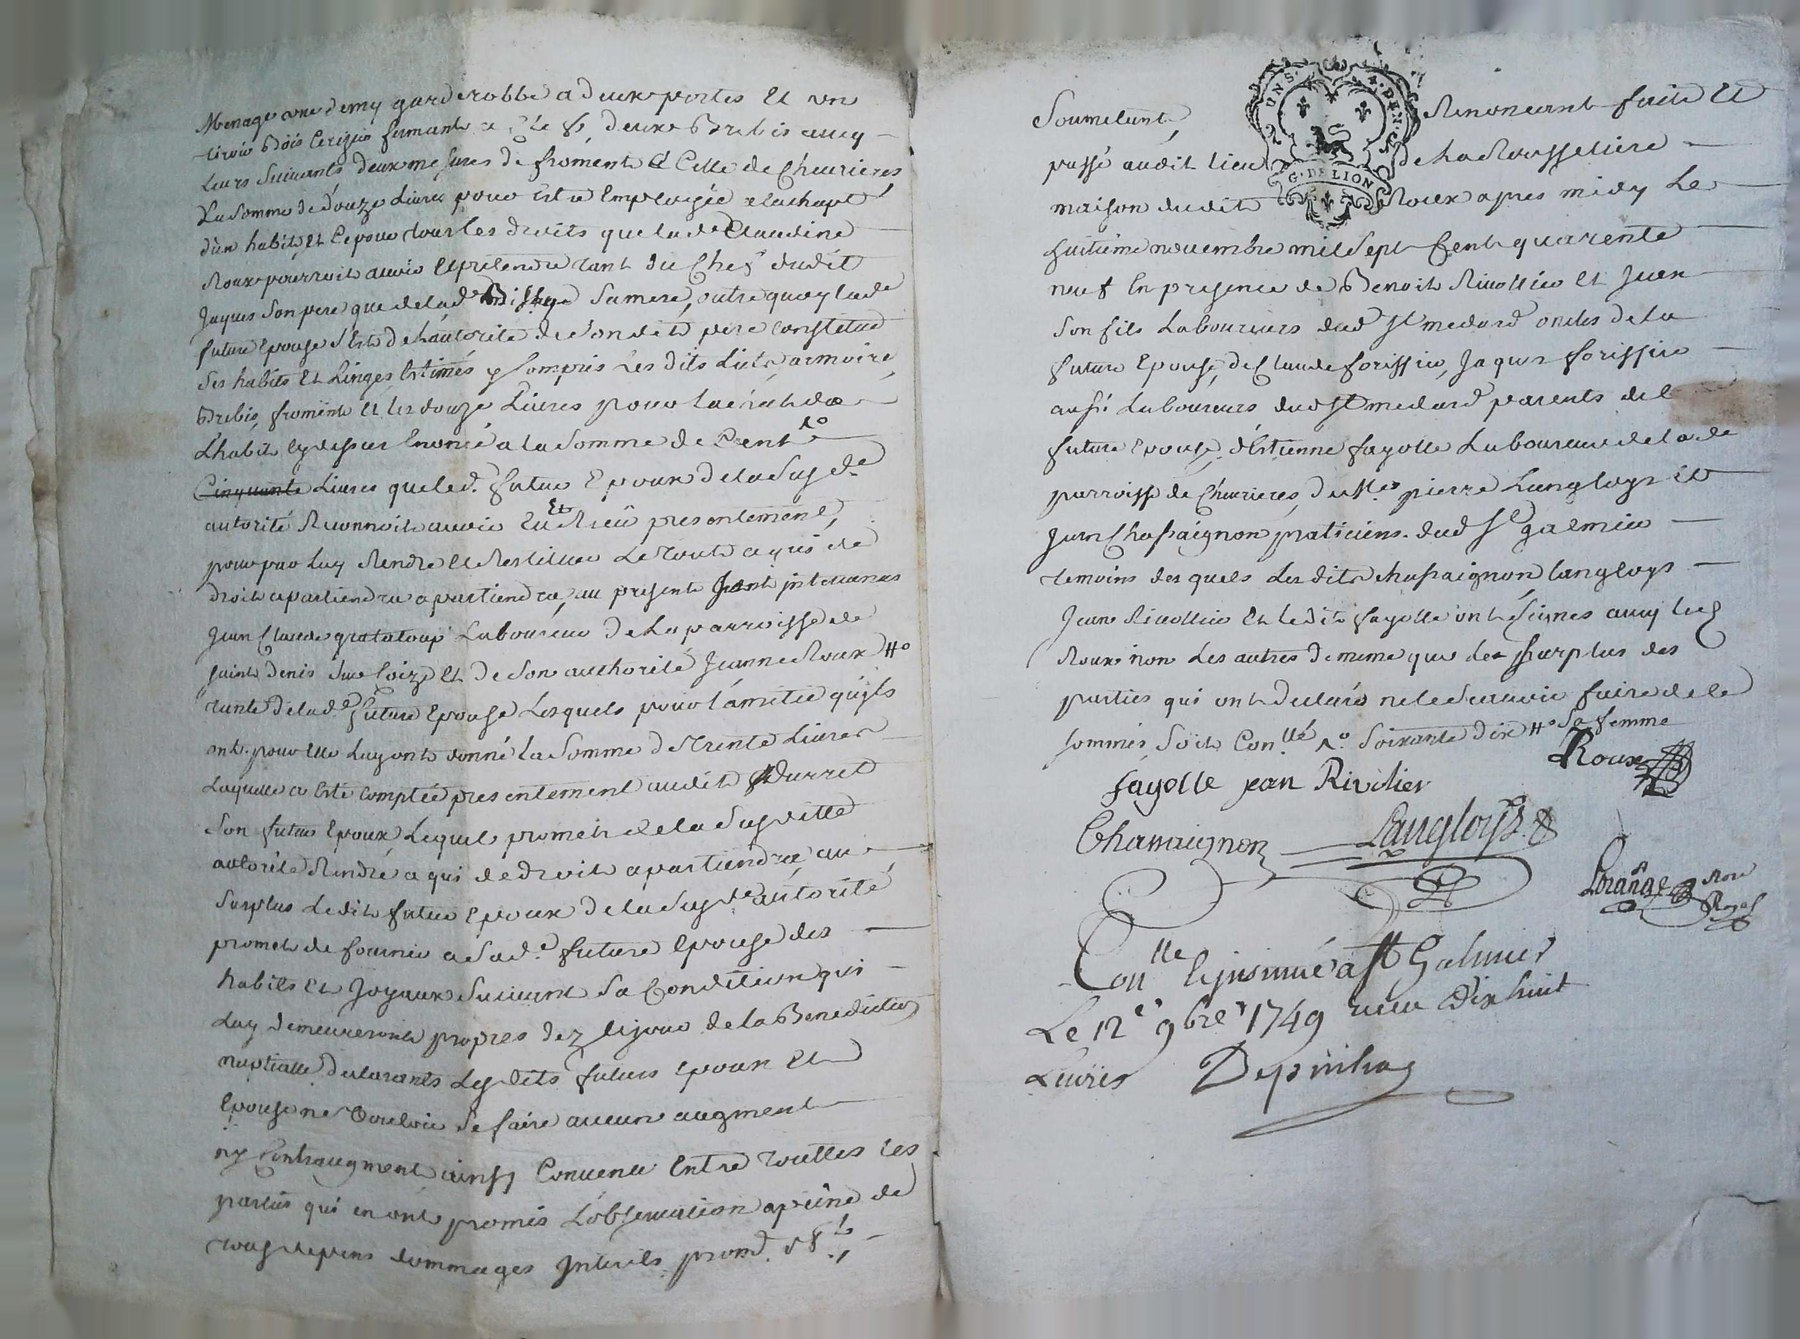 Menage une demy garderobbe a deux portes Et un
tiroir bois Cerizier fermant a Clef, deux Brebis avecq
leurs Suivants deux mesures de froment Celle de Cheurieres
La Somme de douze Livres pour Estre Employée a lachapt
d'un habit Et Ce pour tous les droits que lad.e Claudine
Roux pourroit avoir Et pretendre tant du Chef dudit
Jaques Son pere que de lad.e Sa mere, outre quoy lad.e
future Epouse S'Est de l'autorité de Son dit pere Constitué
Ses habits Et Linges Estimés y Compris Les dits Lict, armoire,
Brebis, froment Et les douze Livres pour lachapt de
L'habit Cy dessus Enoncé a la Somme de Cent
Cinquante Livres que led. futur Epoux de la Susd.e
autorité Reconnoit avoir Eu Et Reçu presentement,
pour par Luy Rendre Et Restituer Le tout a qui de
droit apartiendra apartiendra, au present sont intervenus
Jean Claude grataloup Laboureur De La parroisse de
Saint denis Sur Coize Et de Son authorité Jeanne Roux #o
tante de lad.e future Epouse Lesquels pour l'amitié qu'ils
ont pour Elle Luy ont donné la Somme de trente Livres
Laquelle a Esté Comptée presentement audit Durret
Son futur Epoux Lequel promet de la Susditte
autorité Rendre a qui de droit apartiendra, au
Surplus Ledit futur Epoux de la Susd.e autorité
promet de fournir a Sad.e future Epouse des
habits Et Joyaux Suivant Sa Condition qui
Luy demeureront propres dez le jour de la Benediction
nuptialle declarants Lesdits futurs Epoux Et
Epouse ne Vouloir Se faire aucun augment
ny Contraugment ainsy Convenu Entre touttes les
parties qui en ont promis L'observation a peine de
tous depens dommages Interets prom.
UNS. G. DE LION
Soumettant, Renonceant fait Et
passé audit lieu de La Rousseliere
maison dudit Roux apres midy Le
huitième novembre mil Sept Cent quarente
neuf En presence de Benoit Rivollier Et Jean
Son fils Laboureurs dud. St medard oncles de la
future Epouse, de Claude forissier, Jaques forissier
aussi Laboureurs dud. St medard parents de l
future Epouse, d'Estienne fayolle Laboureur de lad.e
parroisse de Cheurieres, de Mes pierre Langloys Et
Jean Chassaignon praticiens dud. St galmier
temoins des quels Les dits chassaignon langloys
Jean Rivollier Et ledit fayolle ont signés avecq led
Roux non Les autres de meme que le Surplus des
parties qui ont declaré ne le Scavoir faire de ce
sommés Soit Con.llé Ro Soixante dix #o Sa femme
Roux
fayolle jean Rivolier
Chassaignon Langloys
Lorange No.re Royal
Con.lle Et insinué a St Galmier
Le 12e 9bre 1749 recu dix huit
Livres Depinhac